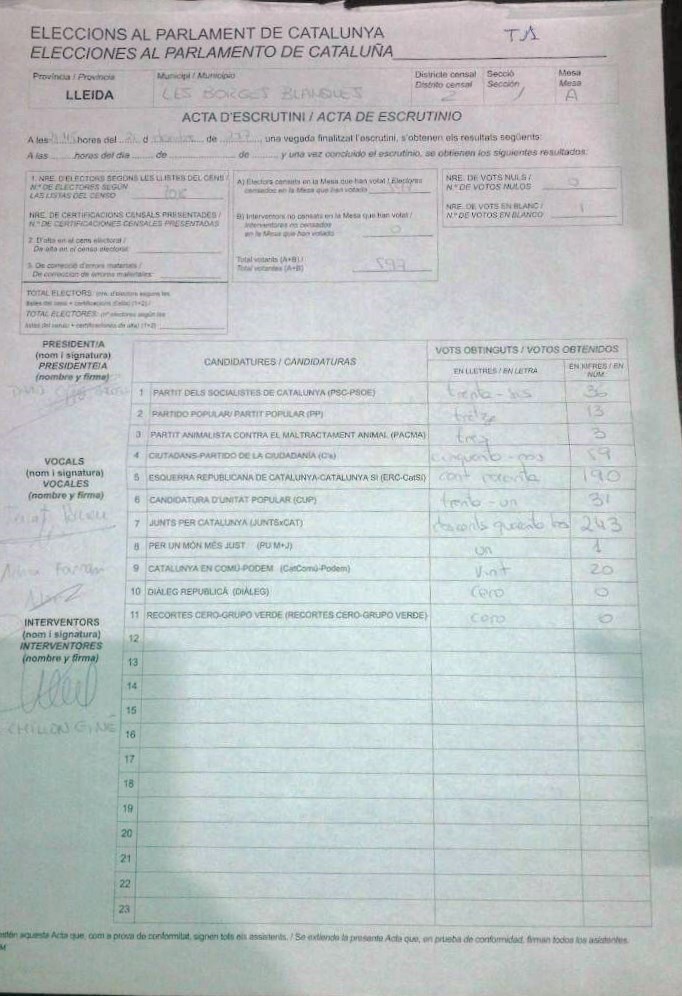 ELECCIONS AL PARLAMENT DE CATALUNYA
ELECCIONES AL PARLAMENTO DE CATALUÑA
TA
Província / Provincia
LLEIDA
Municipi / Municipio
LES BORGES BLANQUES
Districte censal
Distrito censal
2
Secció
Sección
1
Mesa
Mesa
A
ACTA D'ESCRUTINI / ACTA DE ESCRUTINIO
A les hores del d de , una vegada finalitzat l'escrutini, s'obtenen els resultats següents:
A las horas del día de de , y una vez concluido el escrutinio, se obtienen los siguientes resultados:
1. NRE. D'ELECTORS SEGONS LES LLISTES DEL CENS /
N.º DE ELECTORES SEGÚN
LAS LISTAS DEL CENSO
NRE. DE CERTIFICACIONS CENSALS PRESENTADES /
N.º DE CERTIFICACIONES CENSALES PRESENTADAS
2. D'alta en el cens electoral /
De alta en el censo electoral
3. De correcció d'errors materials /
De corrección de errores materiales
TOTAL ELECTORS: (nre. d'electors segons les
llistes del cens + certificacions d'alta) (1+2) /
TOTAL ELECTORES: (nº electores según las
listas del censo + certificaciones de alta) (1+2)
A) Electors censats en la Mesa que han votat / Electores
censados en la Mesa que han votado
B) Interventors no censats en la Mesa que han votat /
Interventores no censados
en la Mesa que han votado
0
Total votants (A+B) /
Total votantes (A+B)
597
NRE. DE VOTS NULS /
N.º DE VOTOS NULOS
0
NRE. DE VOTS EN BLANC /
N.º DE VOTOS EN BLANCO
1
PRESIDENT/A
(nom i signatura)
PRESIDENTE/A
(nombre y firma)
VOCALS
(nom i signatura)
VOCALES
(nombre y firma)
INTERVENTORS
(nom i signatura)
INTERVENTORES
(nombre y firma)
CHILLON GINÉ
CANDIDATURES / CANDIDATURAS
VOTS OBTINGUTS / VOTOS OBTENIDOS
EN LLETRES / EN LETRA
EN XIFRES / EN NÚM.
1 PARTIT DELS SOCIALISTES DE CATALUNYA (PSC-PSOE) trenta-sis 36
2 PARTIDO POPULAR/ PARTIT POPULAR (PP) tretze 13
3 PARTIT ANIMALISTA CONTRA EL MALTRACTAMENT ANIMAL (PACMA) tres 3
4 CIUTADANS-PARTIDO DE LA CIUDADANÍA (C's) cinquanta-nou 59
5 ESQUERRA REPUBLICANA DE CATALUNYA-CATALUNYA SÍ (ERC-CatSí) cent noranta 190
6 CANDIDATURA D'UNITAT POPULAR (CUP) trenta-un 31
7 JUNTS PER CATALUNYA (JUNTSxCAT) doscents quaranta tres 243
8 PER UN MÓN MÉS JUST (PUM+J) un 1
9 CATALUNYA EN COMÚ-PODEM (CatComú-Podem) vint 20
10 DIÀLEG REPUBLICÀ (DIÀLEG) cero 0
11 RECORTES CERO-GRUPO VERDE (RECORTES CERO-GRUPO VERDE) cero 0
12
13
14
15
16
17
18
19
20
21
22
23
aquesta Acta que, com a prova de conformitat, signen tots els assistents. / Se extiende la presente Acta que, en prueba de conformidad, firman todos los asistentes.